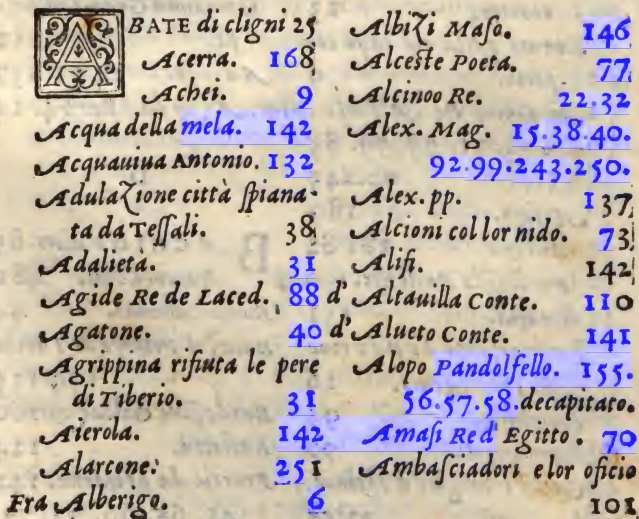 ABATE di cligni 25
Acerra. 168
Achei. 9
Acqua della mela. 142
Acquauiua Antonio. 132
Adulazione città spiana-
ta da Tessali. 38
Adalietà. 31
Agide Re de Laced. 88
Agatone. 40
Agrippina rifiuta le pere
di Tiberio. 31
Aierola. 142
Alarcone. 251
Fra Alberigo. 6
Albizi Maso. 146
Alceste Poeta. 77
Alcinoo Re. 22.32
Alex. Mag. 15.38.40.
92.99.243.250.
Alex. pp. 137
Alcioni col lor nido. 73
Alifi. 142
d'Altauilla Conte. 110
d'Alueto Conte. 141
Alopo Pandolfello. 155.
56.57.58. decapitato.
Amasi Re d'Egitto. 70
Ambasciadori e lor oficio
101